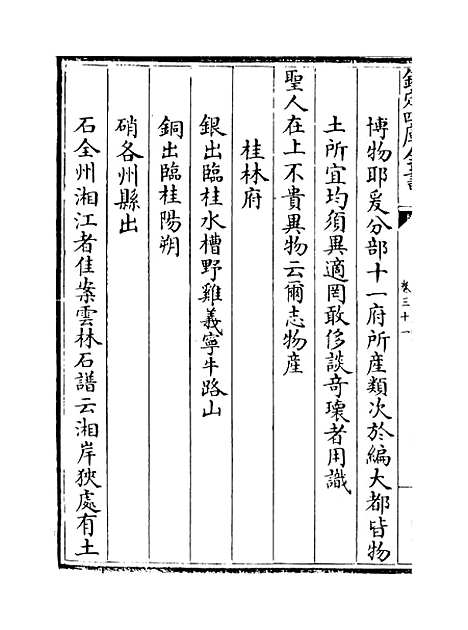 欽定四庫全書
卷三十一
博物耶爰分部十一府所産類次於編大都皆物
土所宜均須異適罔敢侈談奇瓌者用識
聖人在上不貴異物云爾志物産
桂林府
銀出臨桂水槽野雞義寧牛路山
銅出臨桂陽朔
硝各州縣出
石全州湘江者佳案雲林石譜云湘岸狹處有土